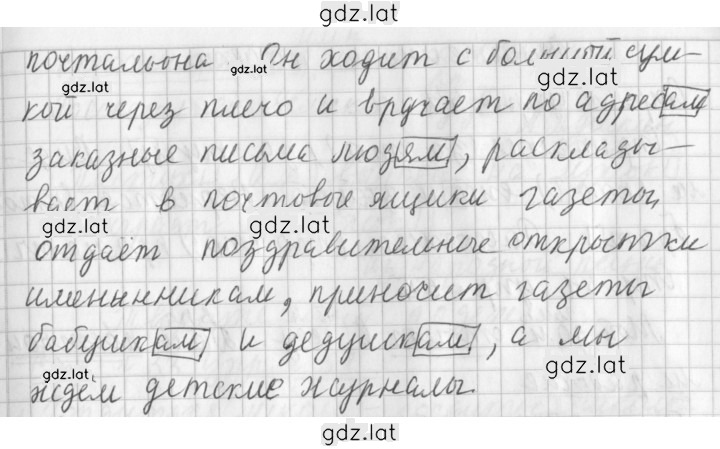 gdz.lat
почтальона. Он ходит с большой сум-
gdz.lat
gdz.lat
gdz.lat
кой через плечо и вручает по адресам
заказные письма людям, расклады-
вает в почтовые ящики газеты,
gdz.lat
gdz.lat
отдаёт поздравительные открытки
именинникам, приносит газеты
бабушкам и дедушкам, а мы
gdz.lat
gdz.lat
ждём детские журналы.
gdz.lat